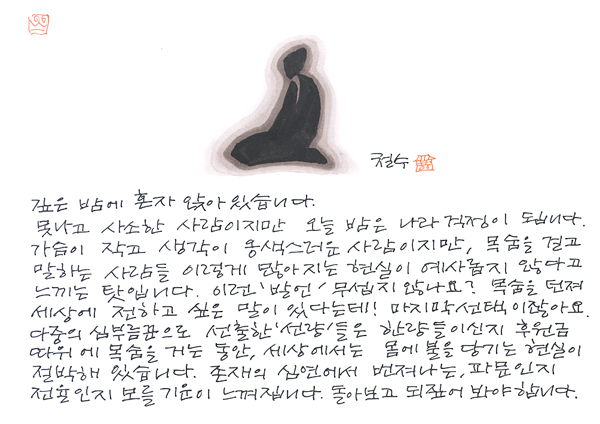 철수
깊은 밤에 혼자 앉아 있습니다.
못나고 사소한 사람이지만 오늘 밤은 나라 걱정이 됩니다.
가슴이 작고 생각이 옹색스러운 사람이지만, 목숨을 걸고
말하는 사람들 이렇게 많아지는 현실이 예사롭지 않다고
느끼는 탓입니다. 이런 '발언' 무섭지 않나요? 목숨을 던져
세상에 전하고 싶은 말이 있다는데! 마지막선택이잖아요.
다중의 심부름꾼으로 선출한 '선량'들은 한량들이신지 후원금
따위에 목숨을 거는 동안, 세상에서는 몸에 불을 당기는 현실이
절박해 있습니다. 존재의 심연에서 번져나는, 파문인지
전운인지 모를 기운이 느껴집니다. 돌아보고 되짚어 봐야합니다.